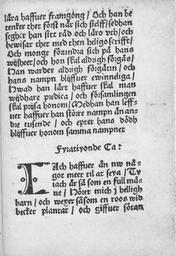 lära haffuer framgöng / Och han be
tencker thet först när sich sielff / sedhan
seghr han siet rådh och läro vth / och
bewiser thet med then helgo scrifft /
Och monge förundra sich på hans
wijsheet / och hon skal aldrigh förgås /
Han warder aldrigh förgäten / och
hans nampn bliffuer ewinnliga /
Hwad han lärt haffuer skal man
wijdhare predica / och församlingen
skal prisa honom / Medhan han leff-
uer haffuer han större nampn än an-
dre tusende / och epter hans dödh
bliffuer honom samma nampnet
Fyratiyonde Ca:
IAch haffuer än nw nå-
got meer til at seya / Ty
iach är så som en full må-
ne / Hörer mich i helligh
barn / och wexer såsom en roos wid
becker plantat / och giffuer sötan